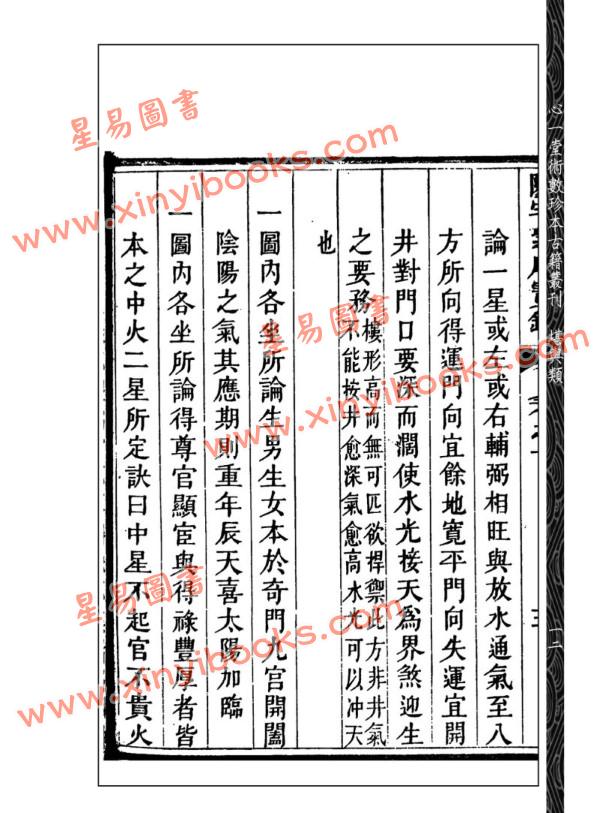 心一堂術數珍本古籍叢刊
類
一二
論一星或左或右輔弼相旺與放水通氣至八
方所向得運門向宜餘地寬平門向失運宜開
井對門口要深而濶使水光接天為界煞迎生
之要務樓形高而無可匹欲捍禦此方非井氣
不能接井愈深氣愈高水尤可以冲天
也
一圖內各坐所論生男生女本於奇門九宫開闔
陰陽之氣其應期則重年辰天喜太陽加臨
一圖內各坐所論得尊官顯宦與得祿豐厚者皆
本之中火二星所定訣曰中星不起官不貴火
星易圖書
www.xinyibooks.com
星易圖書
www.xinyibooks.com
星易圖書
www.xinyibooks.com